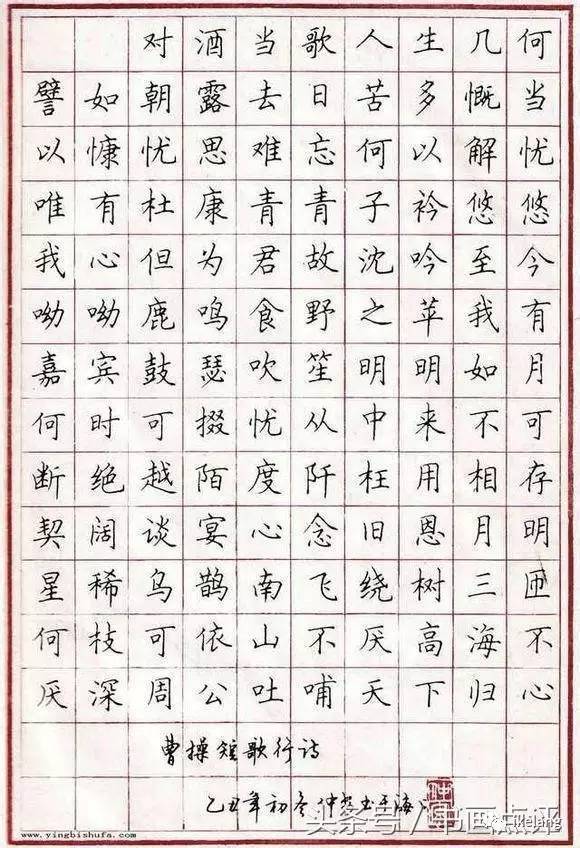 对酒当歌人生几何
譬如朝露去日苦多慨当
以慷忧思难忘何以解忧
唯有杜康青青子衿悠悠
我心但为君故沈吟至今
呦呦鹿鸣食野之苹我有
嘉宾鼓瑟吹笙明明如月
何时可掇忧从中来不可
断绝越陌度阡枉用相存
契阔谈宴心念旧恩月明
星稀乌鹊南飞绕树三匝
何枝可依山不厌高海不
厌深周公吐哺天下归心
曹操短歌行诗
乙丑年初冬仲书于海
头条号/书画点评
www.yingbishufa.com